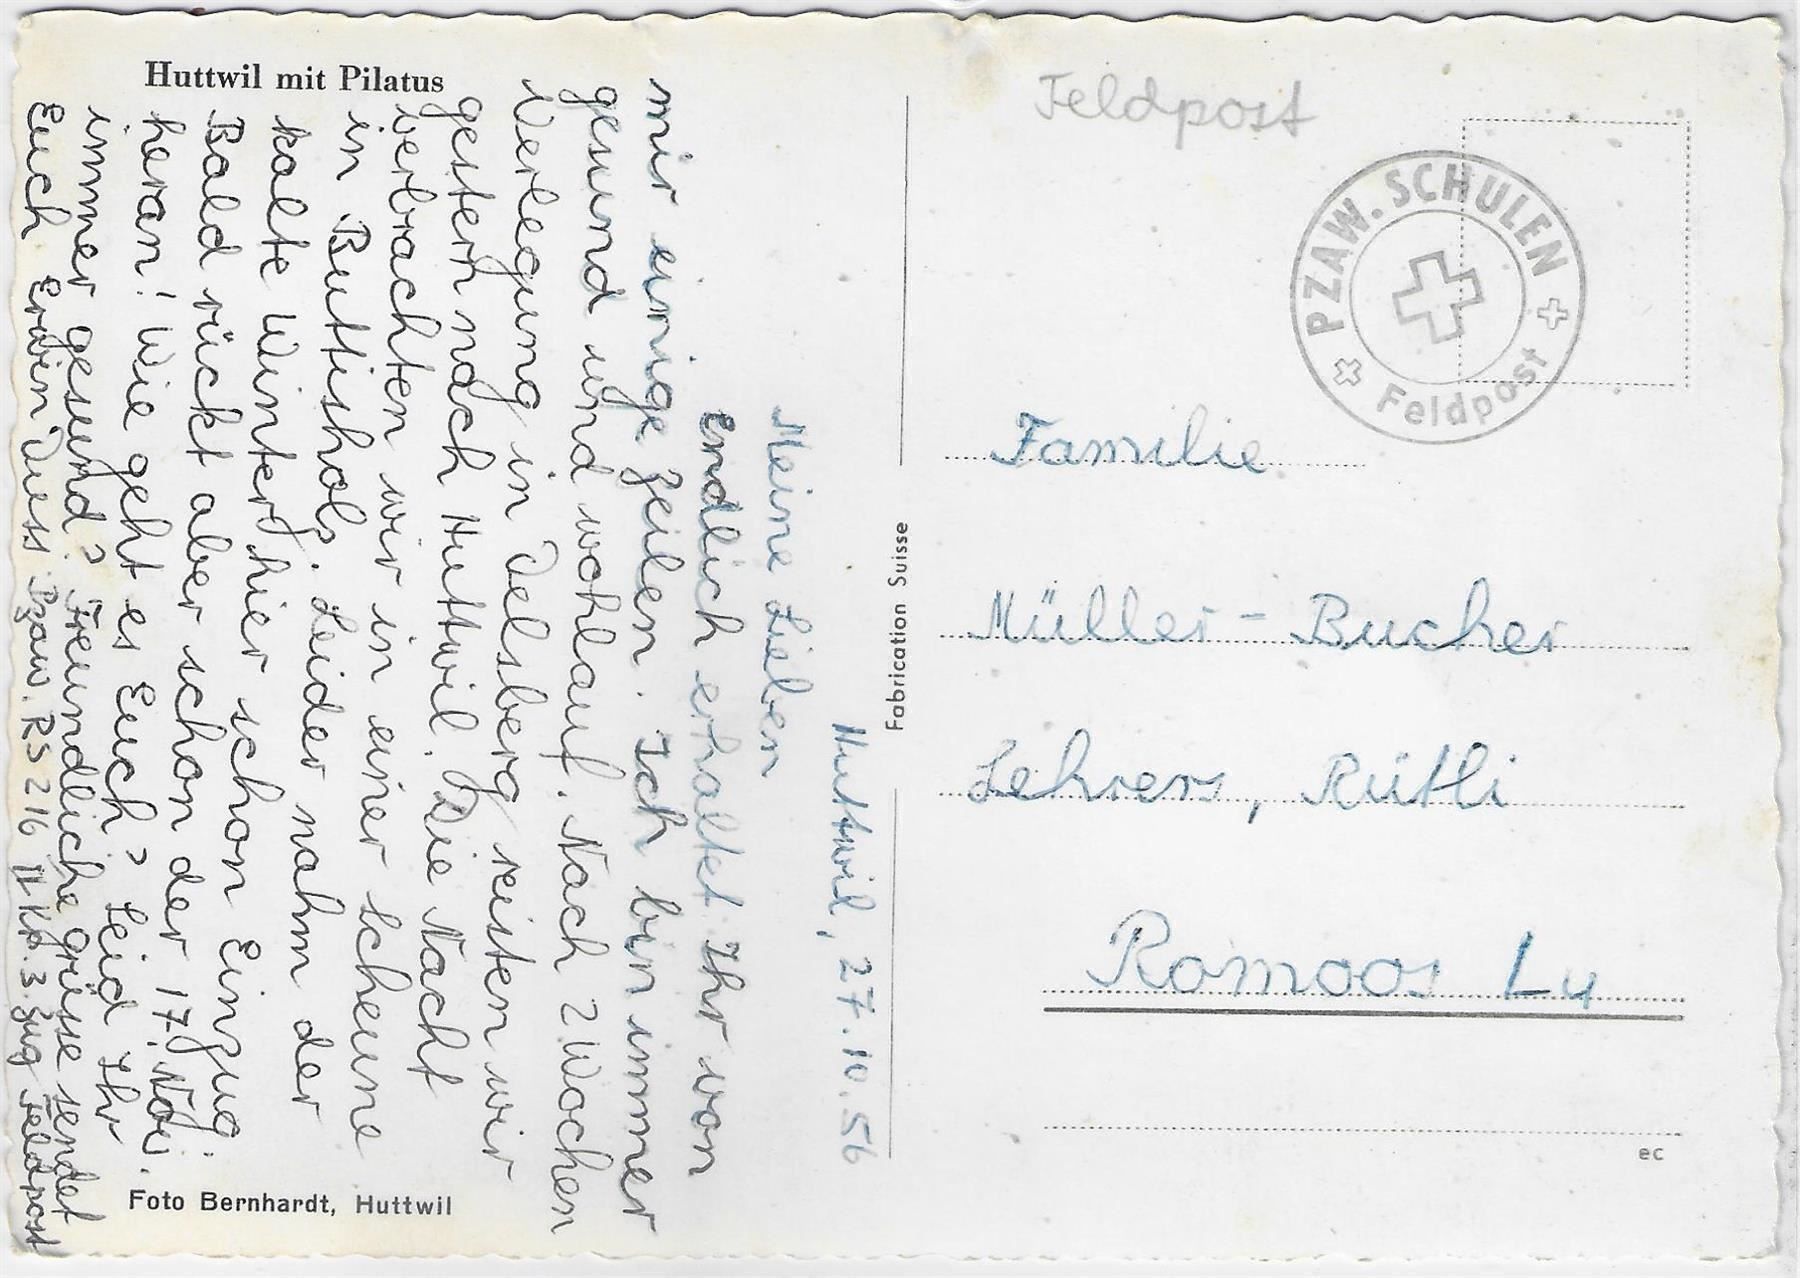 Huttwil mit Pilatus
Huttwil, 27.10.56
Meine Lieben
Endlich erhaltet Ihr von
mir einige Zeilen. Ich bin immer
gesund und wohlauf. Nach 2 Wochen
Verlegung in Delsberg reisten wir
gestern nach Huttwil. Die Nacht
verbrachten wir in einer Scheune
in Buttisholz. Leider nahm der
kalte Winter hier schon Einzug.
Bald rückt aber schon der 17. Nov.
heran! Wie geht es Euch? Seid Ihr
immer gesund? Freundliche Grüsse sendet
Euch Erwin Duss Pzaw. RS 216 II Kp. 3. Zug Feldpost
Foto Bernhardt, Huttwil
Fabrication Suisse
Feldpost
PZAW. SCHULEN
Feldpost
Familie
Müller-Bucher
Lehrers, Rütli
Romoos Lu
ec